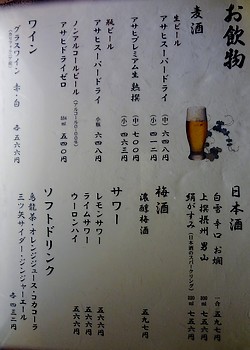 お飲物
麦酒
生ビール
アサヒスーパードライ (小) 六四八円
(中) 九一二円
アサヒプレミアム生 熟撰 (小) 七〇〇円
(中) 八六三円
瓶ビール
アサヒスーパードライ 小瓶 六四八円
ノンアルコールビール
アサヒドライゼロ 334ml 五四〇円
ワイン
グラスワイン 赤・白 各 五六六円
日本酒
白雪 辛口 お燗 一合 五九七円
上撰 摂州 男山 300ml 七五六円
絹がすみ(日本酒のスパークリング) 七五六円
梅酒
濃醇梅酒 五九七円
サワー
レモンサワー 五六六円
ライムサワー 五六六円
ウーロンハイ 五六六円
ソフトドリンク
烏龍茶・オレンジジュース・コカコーラ
三ツ矢サイダー・ジンジャーエール 各 四三二円